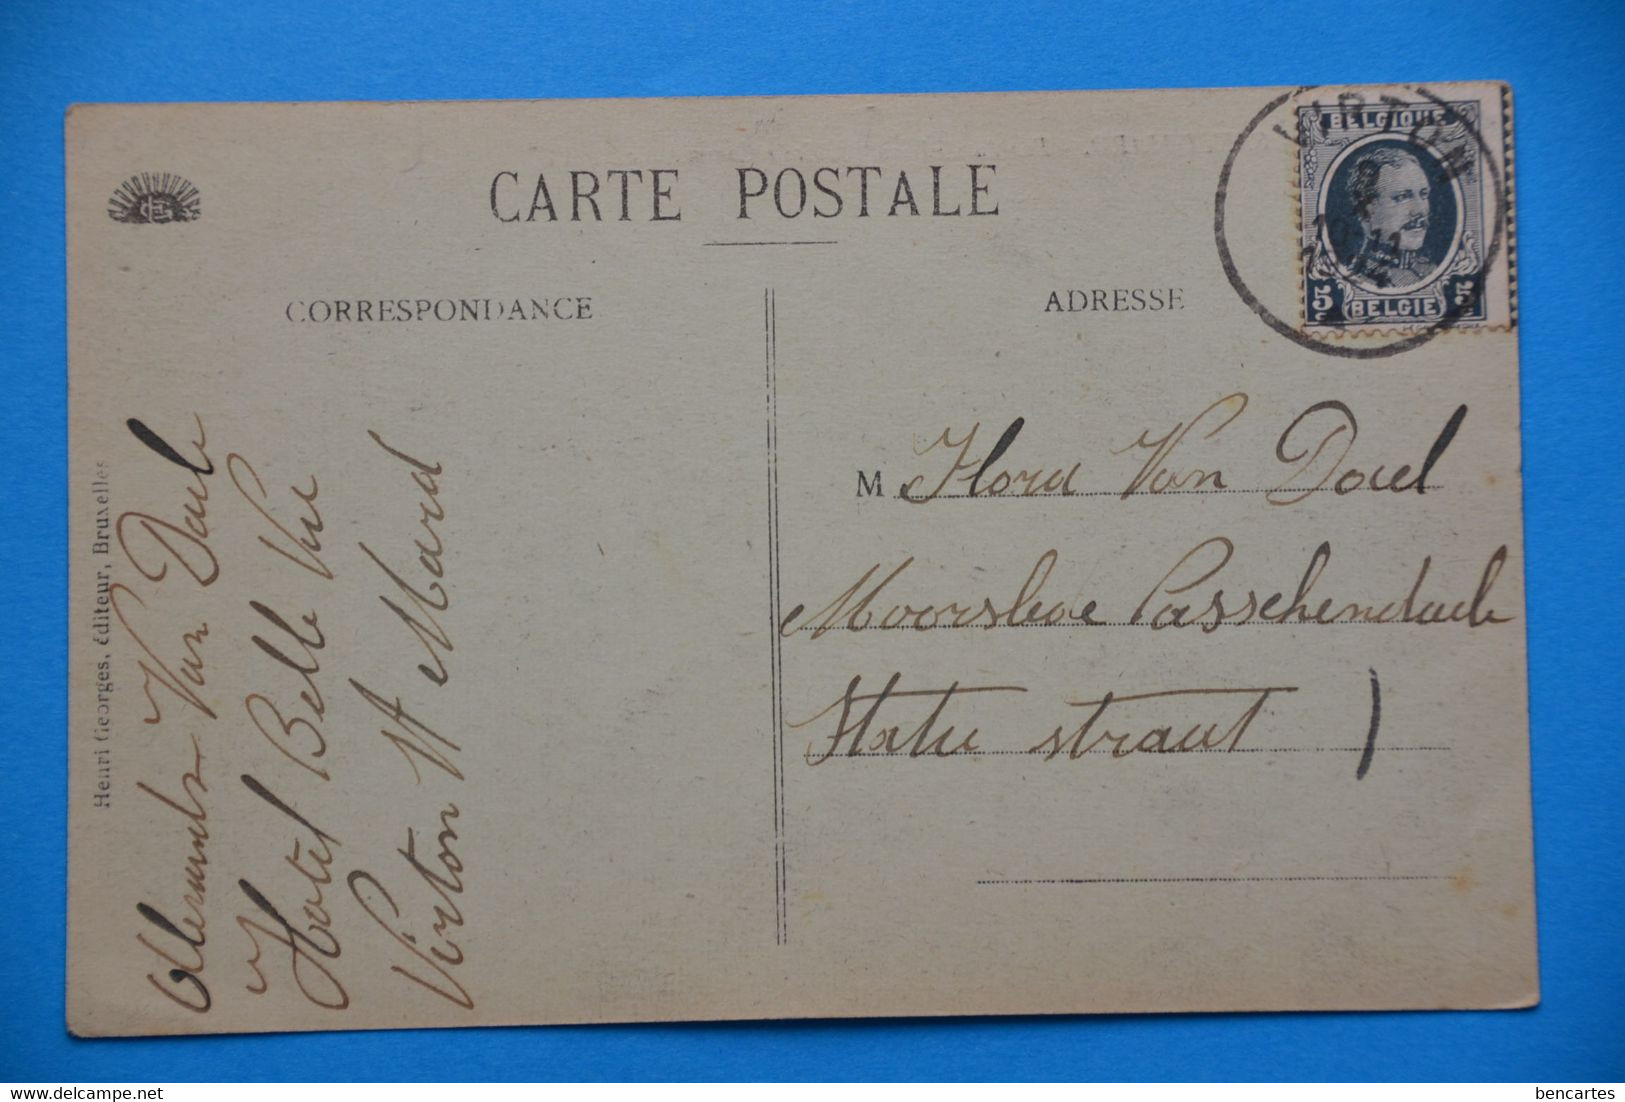 CARTE POSTALE
CORRESPONDANCE
ADRESSE
VIRTON
BELGIQUE
5 BELGIE 5
Henri Georges, éditeur, Bruxelles
Van Daele
Hotel Belle Vue
Virton St Mard
M Flora Van Dael
Moorslede Passchendaele
Statie straat 1
bencartes